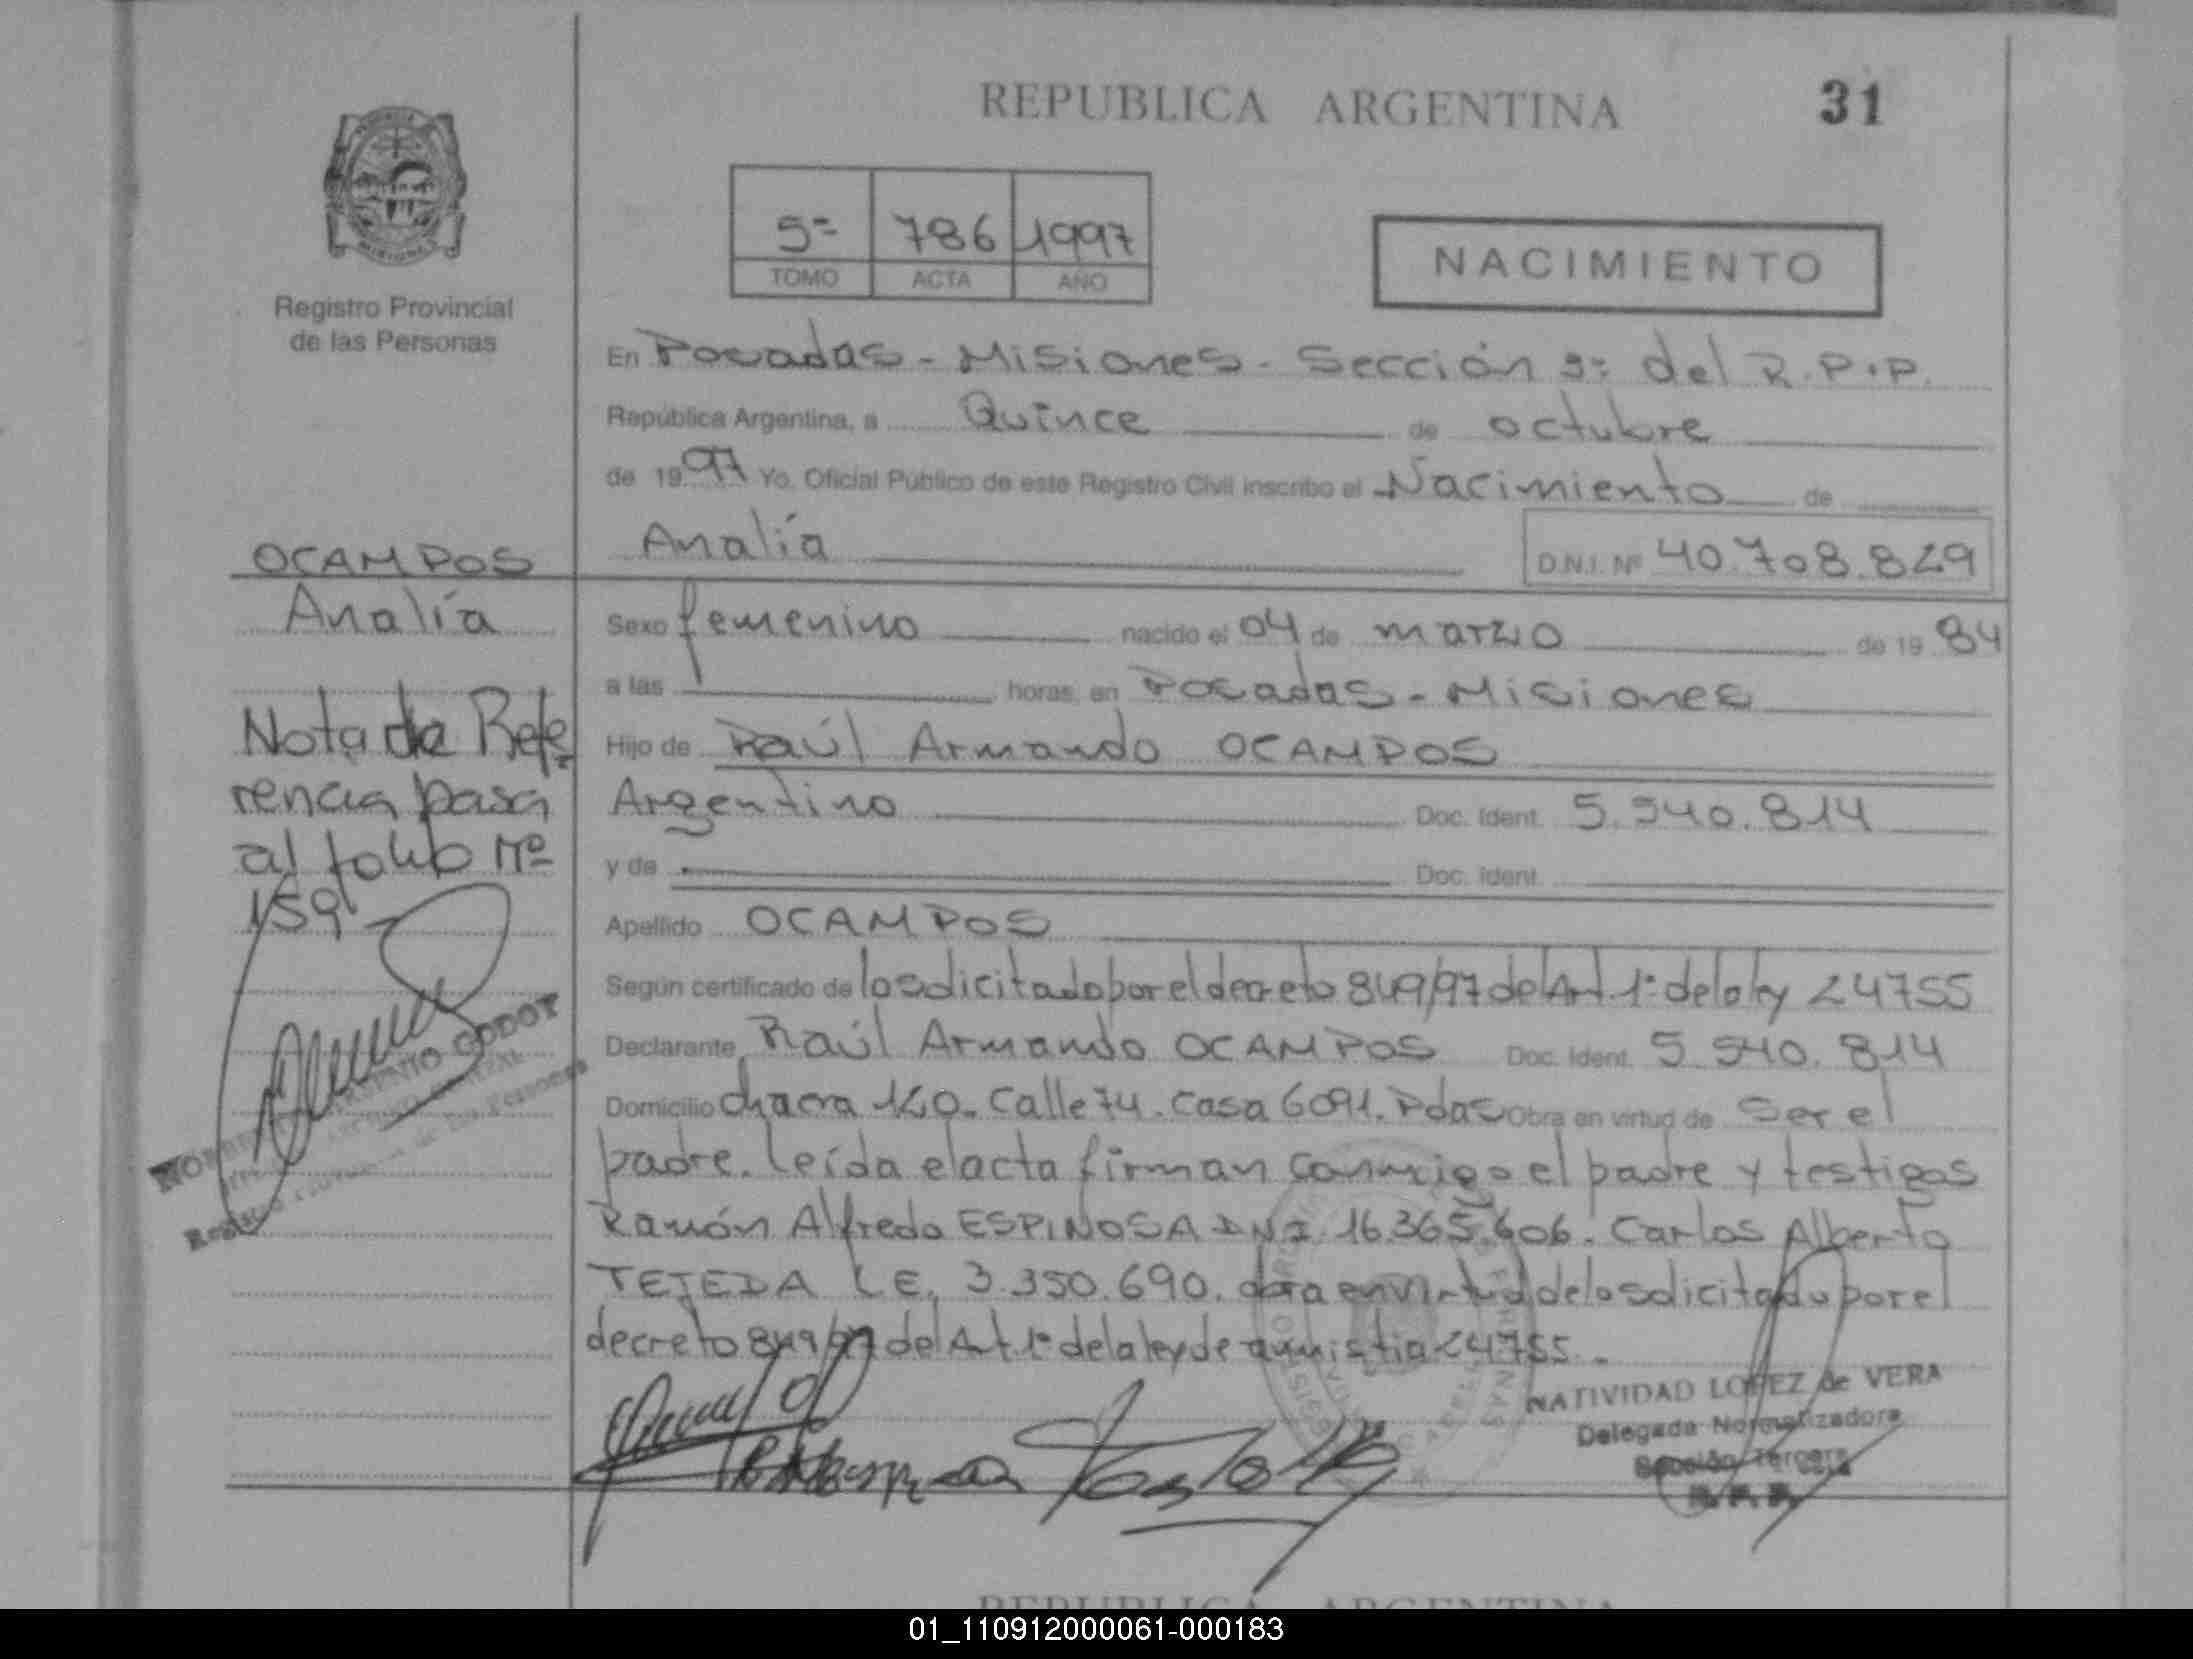 REPUBLICA ARGENTINA
31
5= 786 1997
TOMO ACTA AÑO
NACIMIENTO
Registro Provincial
de las Personas
En Posadas - Misiones - Sección 3: del R.P.P.
República Argentina, a Quince de octubre
de 1997 Yo, Oficial Público de este Registro Civil inscribo el Nacimiento de
Analía
D.N.I. Nº 40.708.829
OCAMPOS
Analía
Sexo femenino nacido el 04 de marzo de 1984
a las horas, en Posadas - Misiones
Hijo de Raúl Armando OCAMPOS
Argentino Doc. Ident. 5.540.814
y de Doc. Ident.
Apellido OCAMPOS
Según certificado de lo solicitado por el decreto 849/97 del Art. 1º de la ley 24755
Declarante Raúl Armando OCAMPOS Doc. Ident. 5.540.814
Domicilio chacra 120. Calle 74. Casa 6091. Pdas Obra en virtud de ser el
padre. Leída el acta firman conmigo el padre y testigos
Ramón Alfredo ESPINOSA DNI 16.365.606. Carlos Alberto
TEJEDA L.E. 3.350.690. obra en virtud de lo solicitado por el
decreto 849/97 del Art 1º de la ley de amnistia 24755.
Nota de Refe
rencia pasa
al folio Nº
159
GODOY
NATIVIDAD LOPEZ de VERA
Delegada Normalizadora
Sección Tercera
R.P.P.
REPUBLICA ARGENTINA
01_110912000061-000183